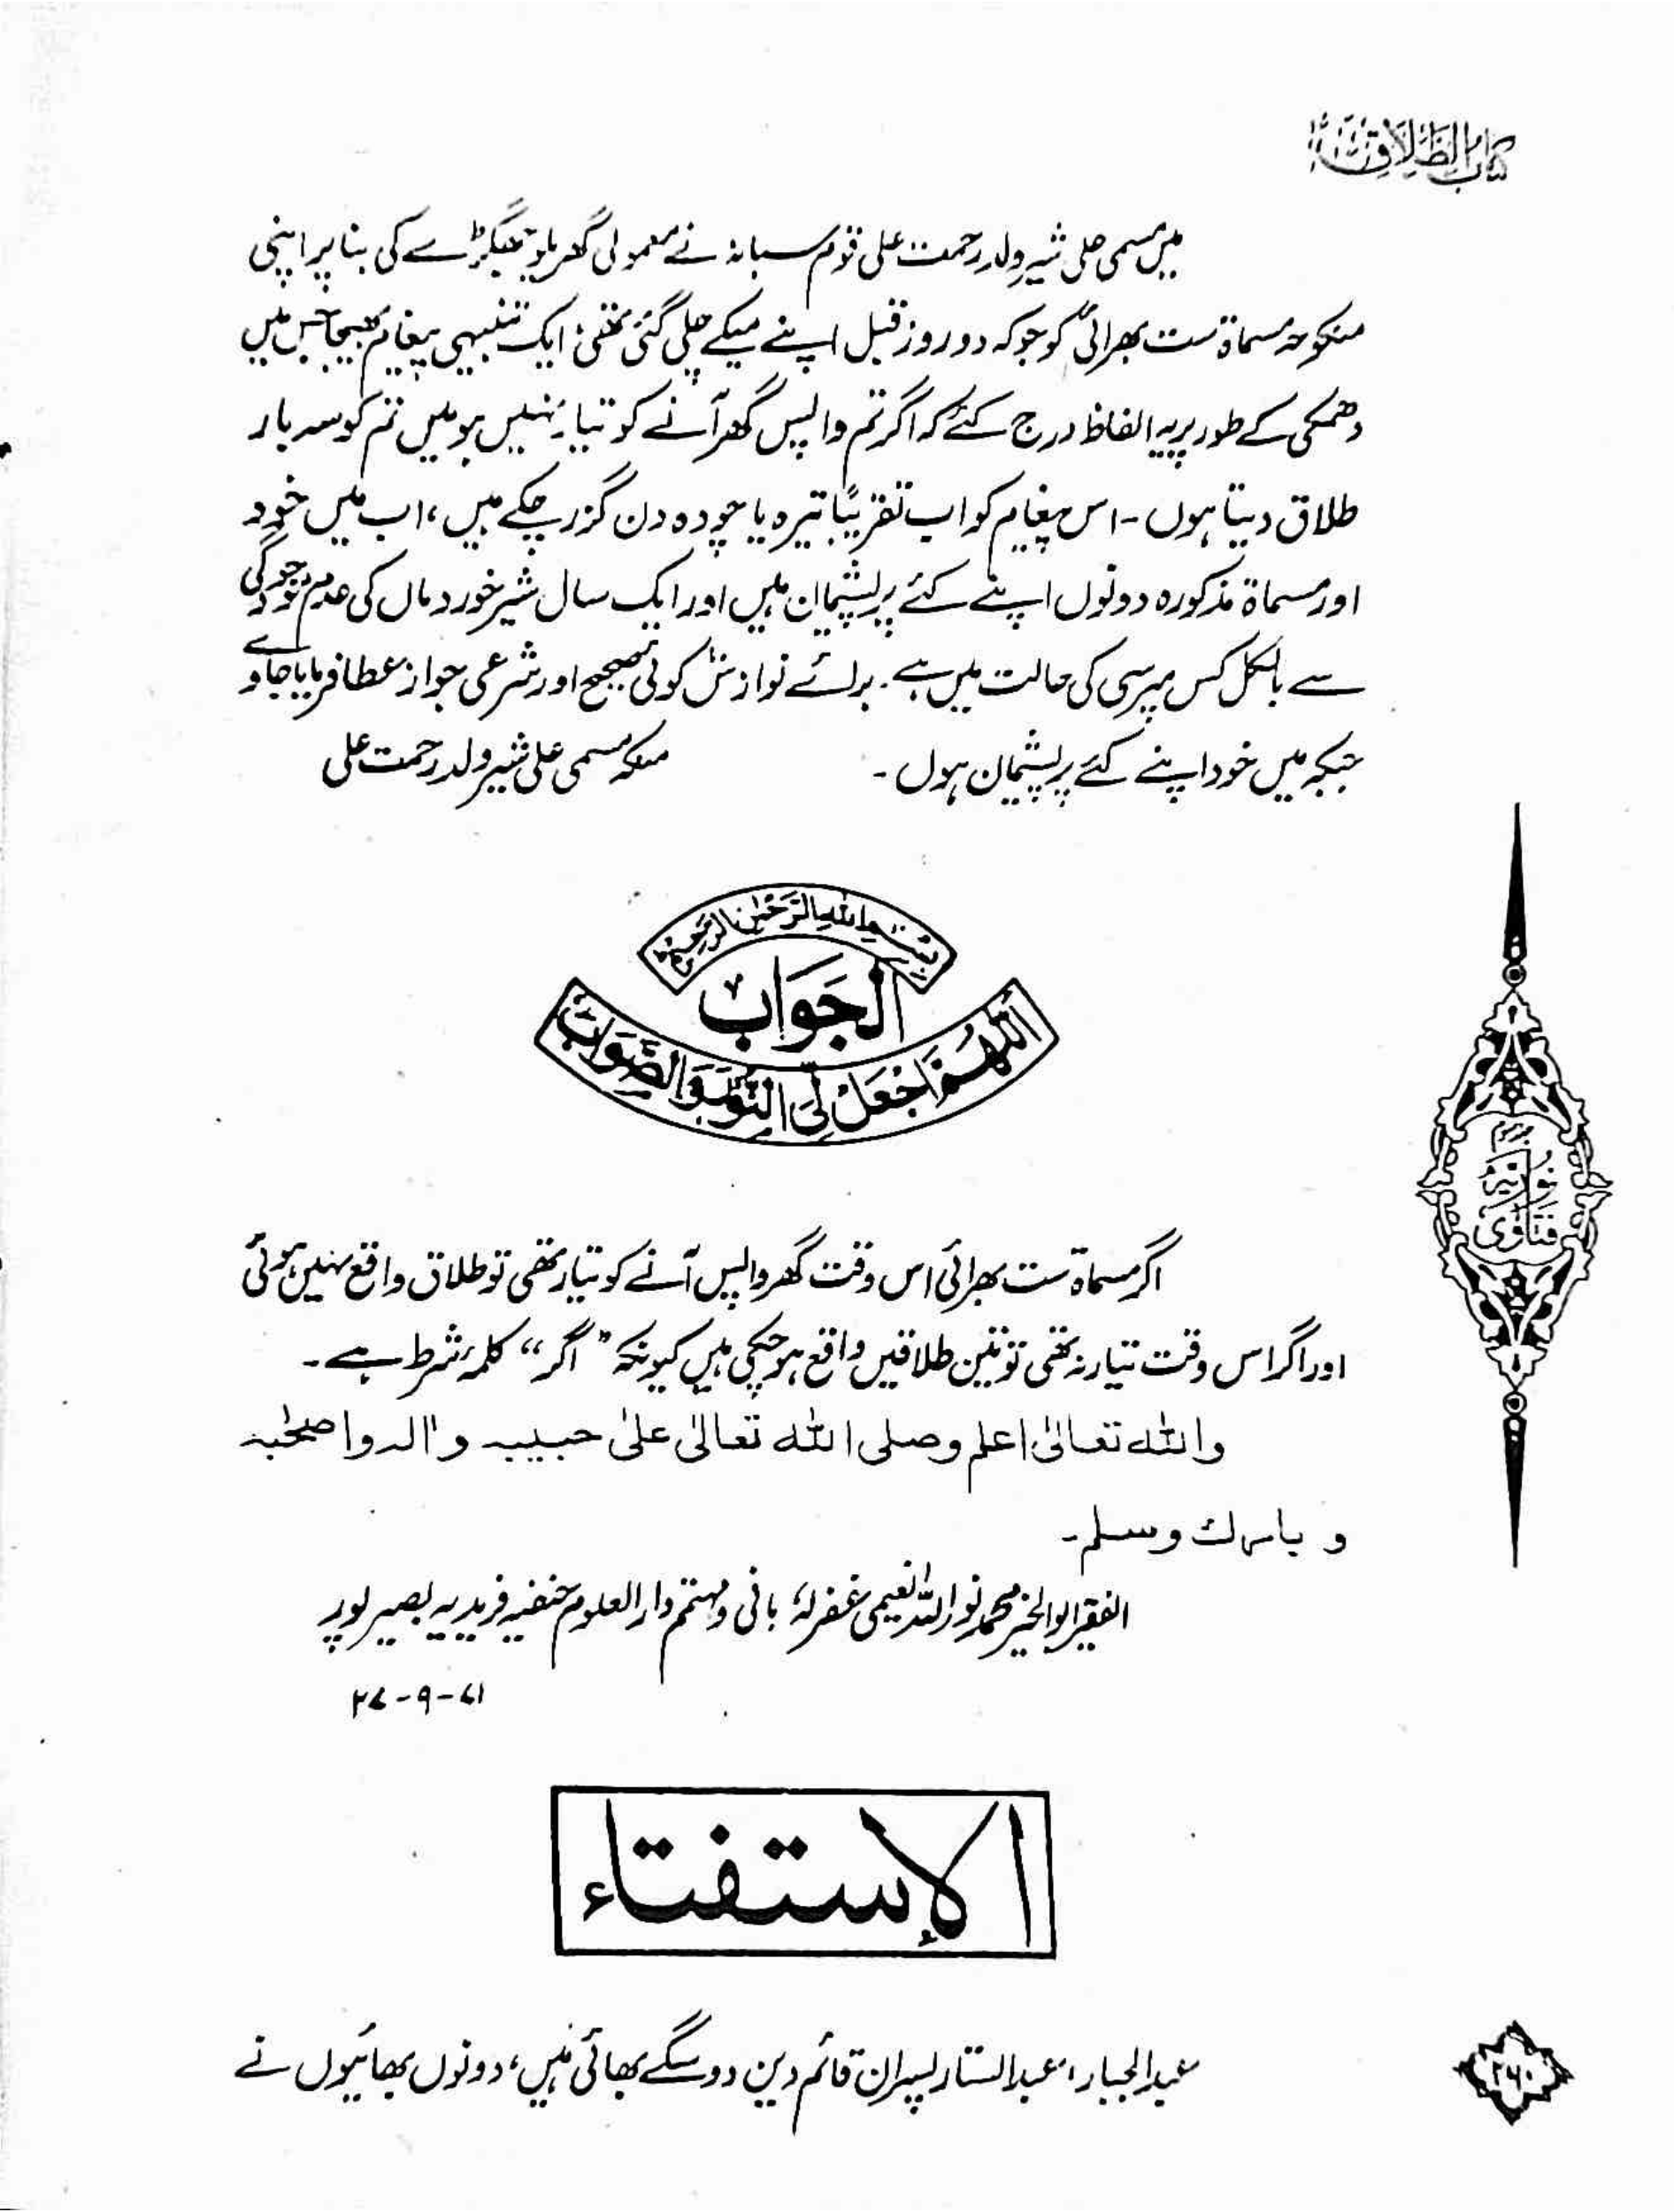 كتاب الطلاق
میں مسمی علی شیر ولد رحمت علی قوم سبانہ نے معمولی گھریلو جھگڑے کی بنا پر اپنی
منکوحہ مسماۃ ست بھرائی کو جوکہ دو روز قبل اپنے میکے چلی گئی تھی، ایک تنبیہی پیغام بھیجا جس میں
دھمکی کے طور پر یہ الفاظ درج کئے کہ اگر تم واپس گھر آنے کو تیار نہیں ہو میں تم کو سہ بار
طلاق دیتا ہوں ۔ اس پیغام کو اب تقریباً تیرہ یا چودہ دن گزر چکے ہیں ، اب میں خود
اور مسماۃ مذکورہ دونوں اپنے کئے پر پشیمان ہیں اور ایک سال شیر خورد ماں کی عدم موجودگی
سے بالکل کس مپرسی کی حالت میں ہے ۔ برائے نوازش کوئی صحیح اور شرعی جواز عطا فرمایا جاوے
جبکہ میں خود اپنے کئے پر پشیمان ہوں ۔ منکہ مسمی علی شیر ولد رحمت علی
بِسْمِ اللهِ الرَّحْمٰنِ الرَّحِيْمِ
الجَوَاب
اَللّٰهُمَّ اجْعَلْ لِيَ النُّوْرَ وَالصَّوَابَ
فتاوٰی
نوریہ
اگر مسماۃ ست بھرائی اس وقت گھر واپس آنے کو تیار تھی تو طلاق واقع نہیں ہوئی
اور اگر اس وقت تیار نہ تھی تو تین طلاقیں واقع ہو چکی ہیں کیونکہ ”اگر“ کلمۂ شرط ہے ۔
والله تعالیٰ اعلم وصلی الله تعالیٰ علیٰ حبیبہ و اٰلہ واصحٰبہ
و بارك وسلم ۔
الفقیر ابوالخیر محمد نور اللہ النعیمی غفرلہٗ بانی و مہتمم دارالعلوم حنفیہ فریدیہ بصیر پور
۲۷-۹-۷۱
الإستفتاء
عبدالجبار، عبدالستار پسران قائم دین دو سگے بھائی ہیں ، دونوں بھائیوں نے
۲۶۰